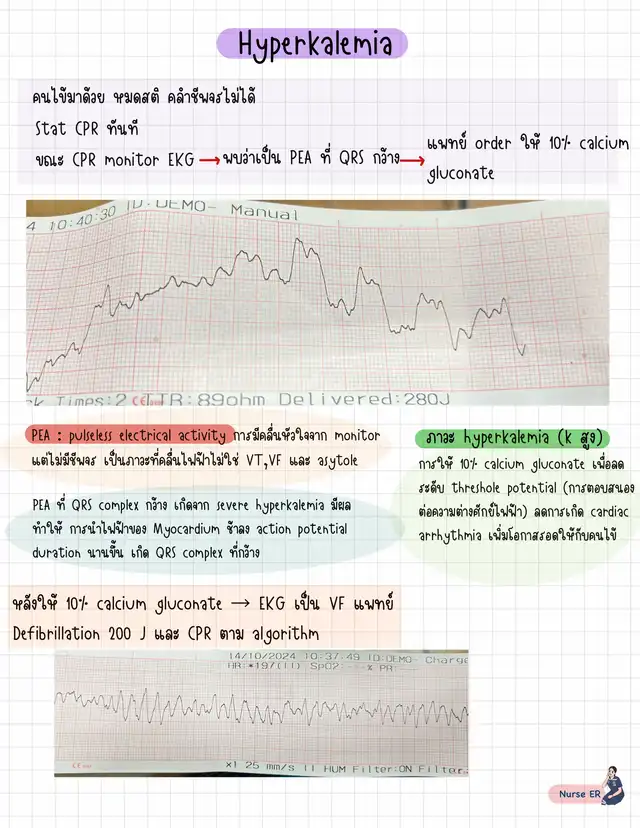 Hyperkalemia
คนไข้มาด้วย หมดสติ คลำชีพจรไม่ได้
Stat CPR ทันที
ขณะ CPR monitor EKG → พบว่าเป็น PEA ที่ QRS กว้าง → แพทย์ order ให้ 10% calcium
gluconate
4 10:40:30 ID:DEMO- Manual
ck Times:2 CE TTR:89ohm Delivered:280J
PEA : pulseless electrical activity การมีคลื่นหัวใจจาก monitor
แต่ไม่มีชีพจร เป็นภาวะที่คลื่นไฟฟ้าไม่ใช่ VT,VF และ asytole
PEA ที่ QRS complex กว้าง เกิดจาก severe hyperkalemia มีผล
ทำให้ การนำไฟฟ้าของ Myocardium ช้าลง action potential
duration นานขึ้น เกิด QRS complex ที่กว้าง
ภาวะ hyperkalemia (k สูง)
การให้ 10% calcium gluconate เพื่อลด
ระดับ threshole potential (การตอบสนอง
ต่อความต่างศักย์ไฟฟ้า) ลดการเกิด cardiac
arrhythmia เพิ่มโอกาสรอดให้กับคนไข้
หลังให้ 10% calcium gluconate → EKG เป็น VF แพทย์
Defibrillation 200 J และ CPR ตาม algorithm
14/10/2024 10:37:49 ID:DEMO- Charge
HR:*197(II) SpO2:---% PR:
CE
x1 25 mm/s II HUM Filter:ON Filter
Nurse ER